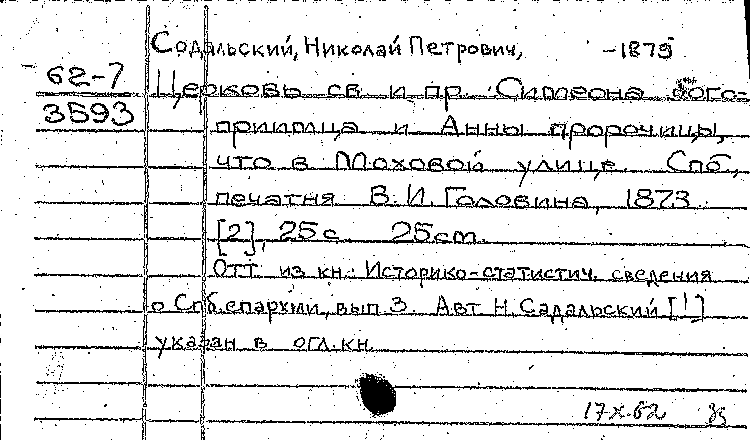 Содальский, Николай Петрович, -1875
62-7
3593
Церковь св. и пр. Симеона бого-
приимца и Анны пророчицы,
что в Моховой улице. Спб.,
печатня В. И. Головина, 1873.
[2], 25 с. 25 cm.
Отт. из кн.: Историко-статистич. сведения
о Спб. епархии, вып. 3. Авт. Н. Садальский [!]
указан в огл. кн.
17 X-62